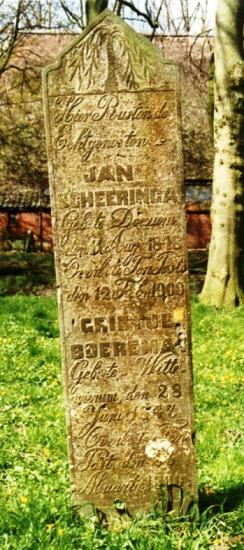 Hier Rusten de
Echtgenoten
JAN
SCHEERINGA
Geb. te
den Aug. 1818
Overl. te Ten Post
den 12 Feb. 1900
GRIETJE
BOEREMA
Geb. te Witte
wierum den 28
Junij
Overl. te
Post den
Maart